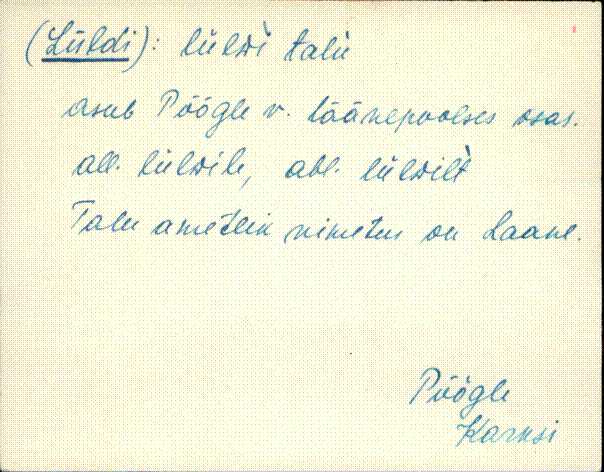 (Lüldi): lüldì talù
asub Pöögle v. läänepoolses osas.
all. lüldile, abl. lüldilt̀
Talu ametlik nimetus on Laane.
Pöögle
Karksi